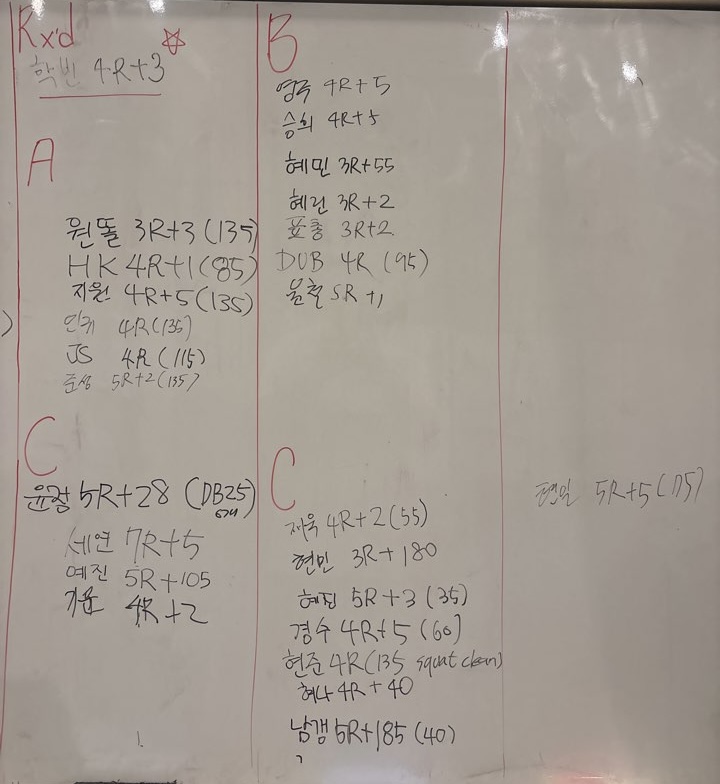 Rx'd
학빈 4R+3
A
원똘 3R+3 (135)
HK 4R+1 (85)
지원 4R+5 (135)
4R (135)
JS 4R (115)
준성 5R+2 (135)
C
윤정 5R+28 (DB25)
세연 7R+5
예진 5R+105
가윤 4R+2
B
영국 4R+5
승희 4R+5
혜민 3R+55
혜린 3R+2
표총 3R+2
DUB 4R (95)
윤철 5R+1
C
재욱 4R+2 (55)
현민 3R+180
혜진 5R+3 (35)
경수 4R+5 (60)
현준 4R (135 squat clean)
혜나 4R+40
남갱 5R+185 (40)
5R+5 (175)